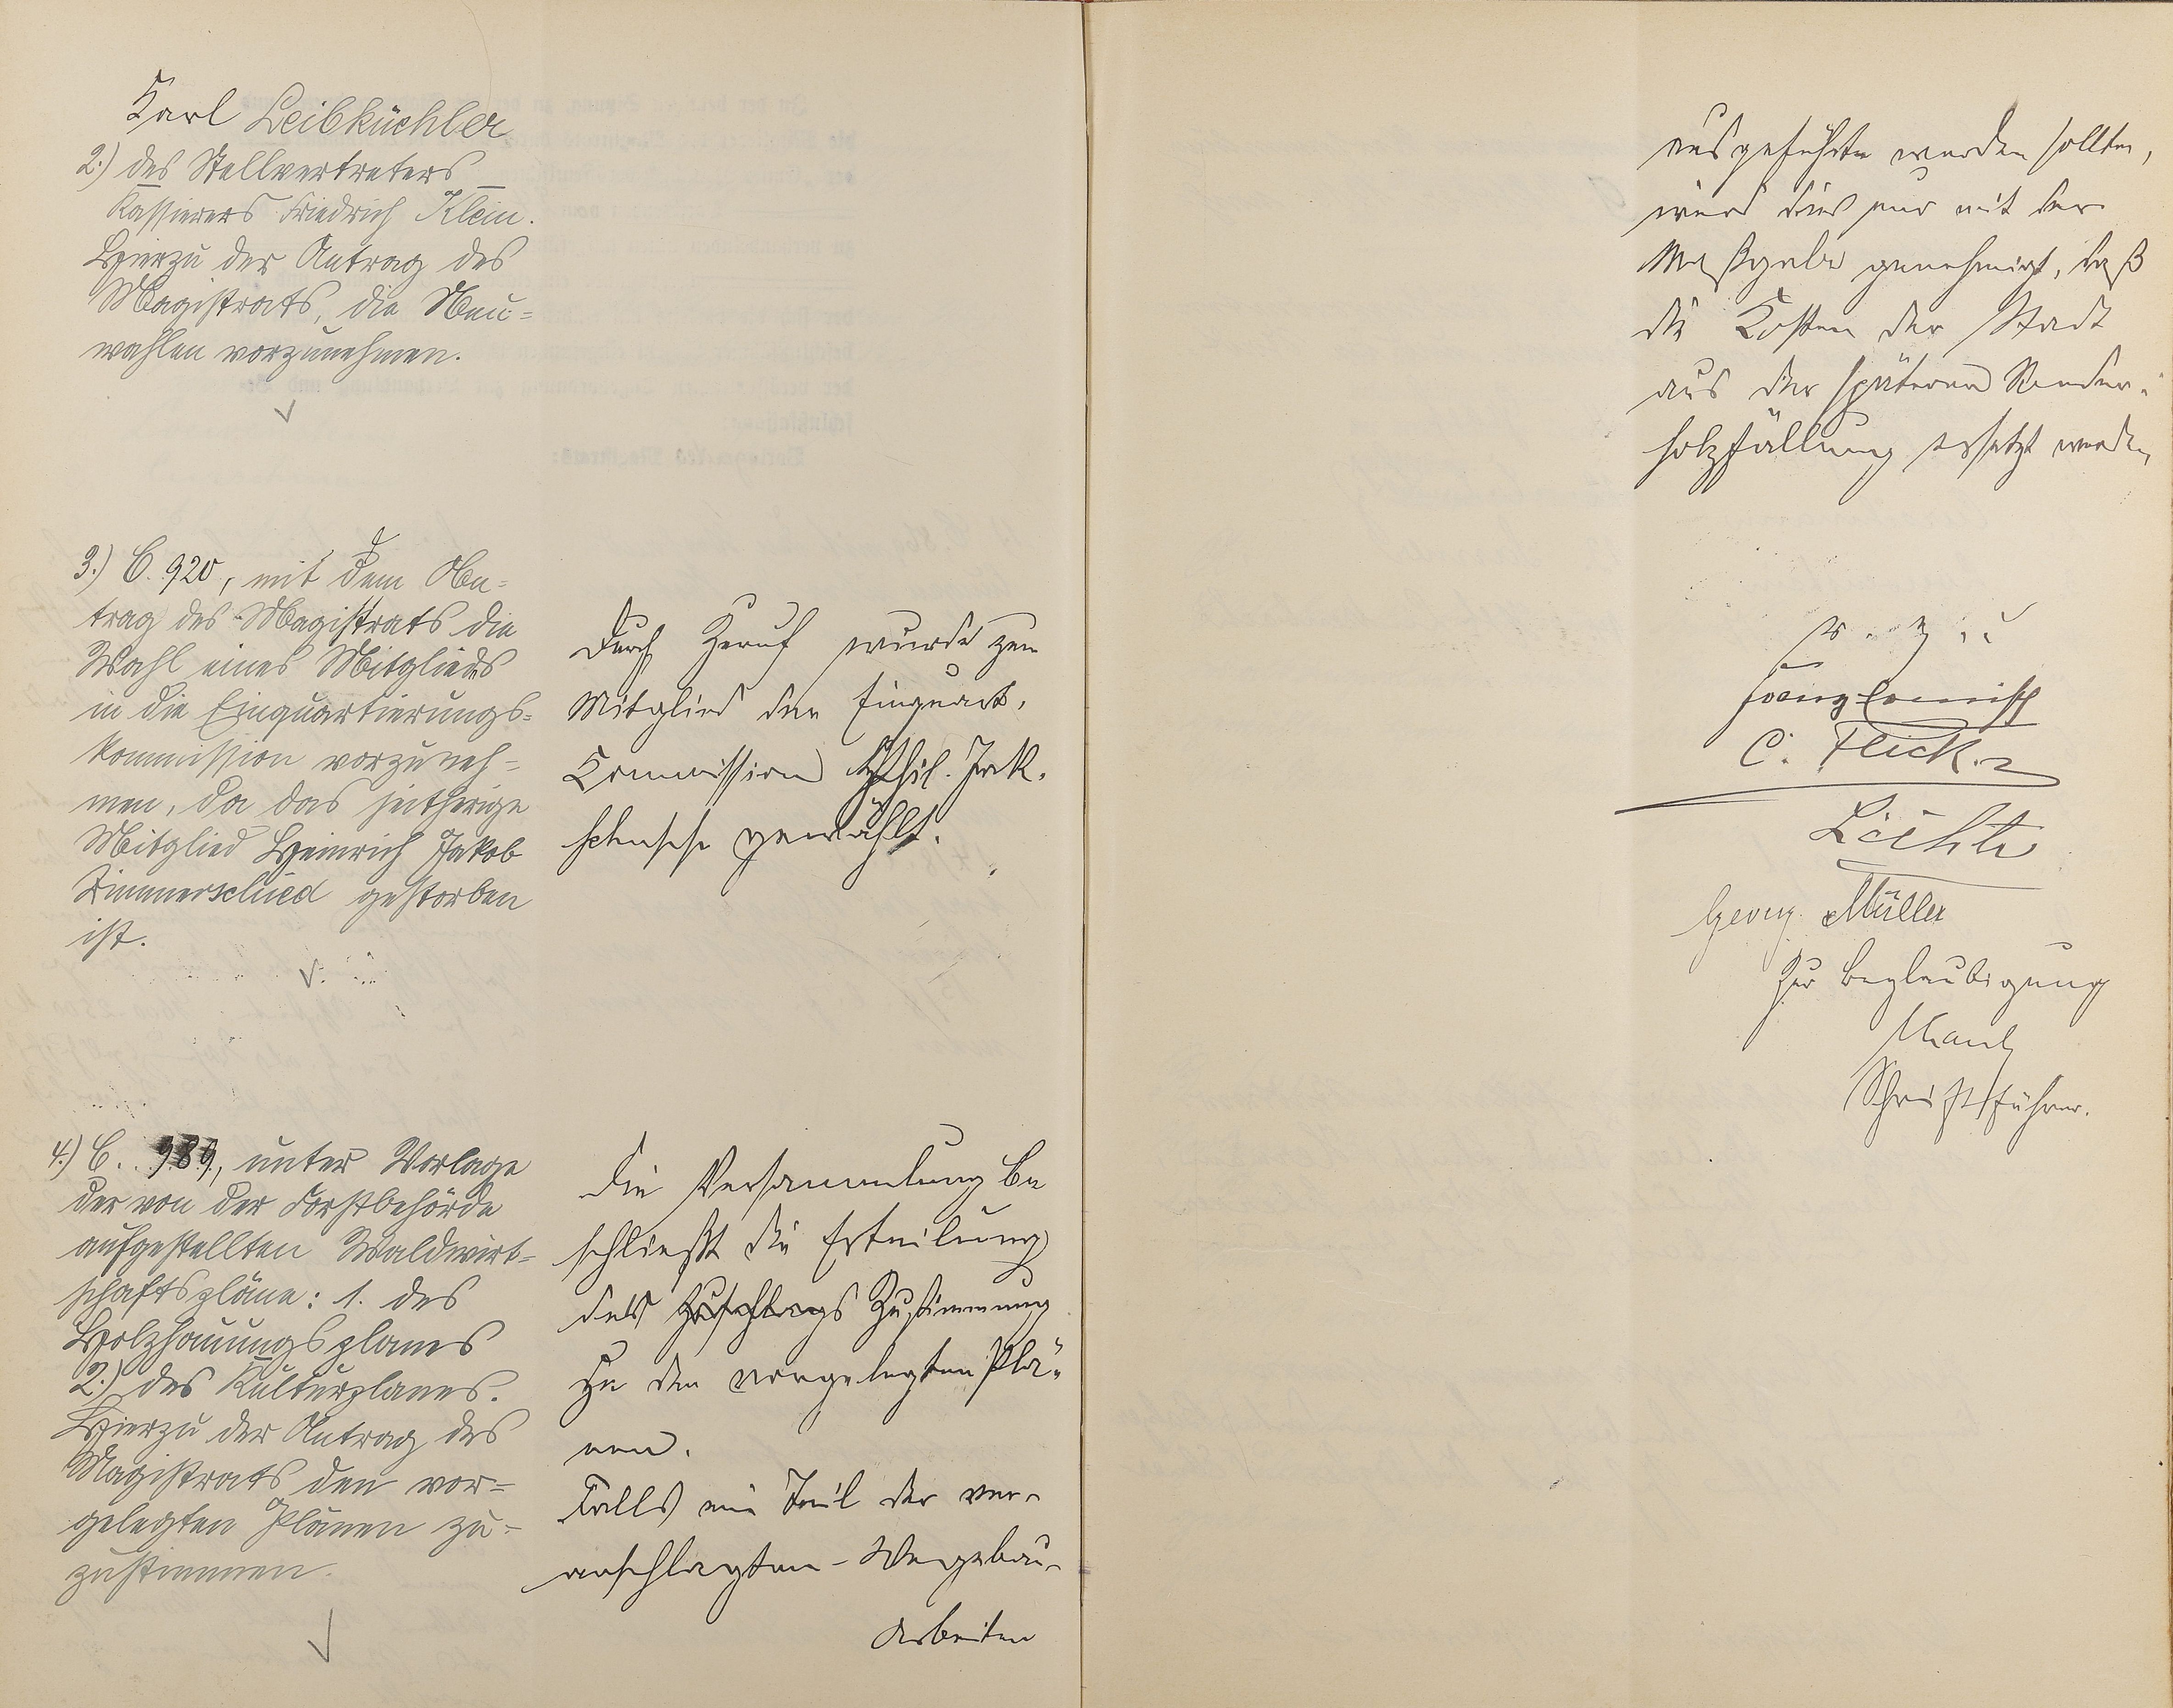 Karl Leibküchler
2.) des Stellvertreters
Kassierers Friedrich Klein.
Hierzu der Antrag des
Magistrats, die Neu-
wahlen vorzunehmen.
3.) C. 920, mit dem An-
trag des Magistrats die
Wahl eines Mitglieds
in die Einquartierungs-
kommission vorzuneh-
men, da das seitherige
Mitglied Heinrich Jakob
Zimmerschied gestorben
ist.
Durch Zuruf wurde zum
Mitglied der Einquart.
Commission Phil. Jak.
gewählt.
4.) C. 989, unter Vorlage
der von der Forstbehörde
aufgestellten Waldwirt-
schaftspläne: 1. des
Holzhauungsplanes
2.) des Kulturplanes.
Hierzu der Antrag des
Magistrats den vor-
gelegten Plänen zu-
zustimmen.
Die Versammlung be
schließt die Erteilung
des Zuschlags Zustimmung
zu den vorgelegten Plä-
nen.
Falls ein Teil der ver-
anschlagten Wegebau-
arbeiten
ausgeführt werden sollten,
wird dies nur mit der
Maßgabe genehmigt, daß
die Kosten der Stadt
aus der späteren Sonder-
holzfällung ersetzt werden
v. g. u.
C. Flick
Georg Müller
Zur Beglaubigung
Schriftführer.